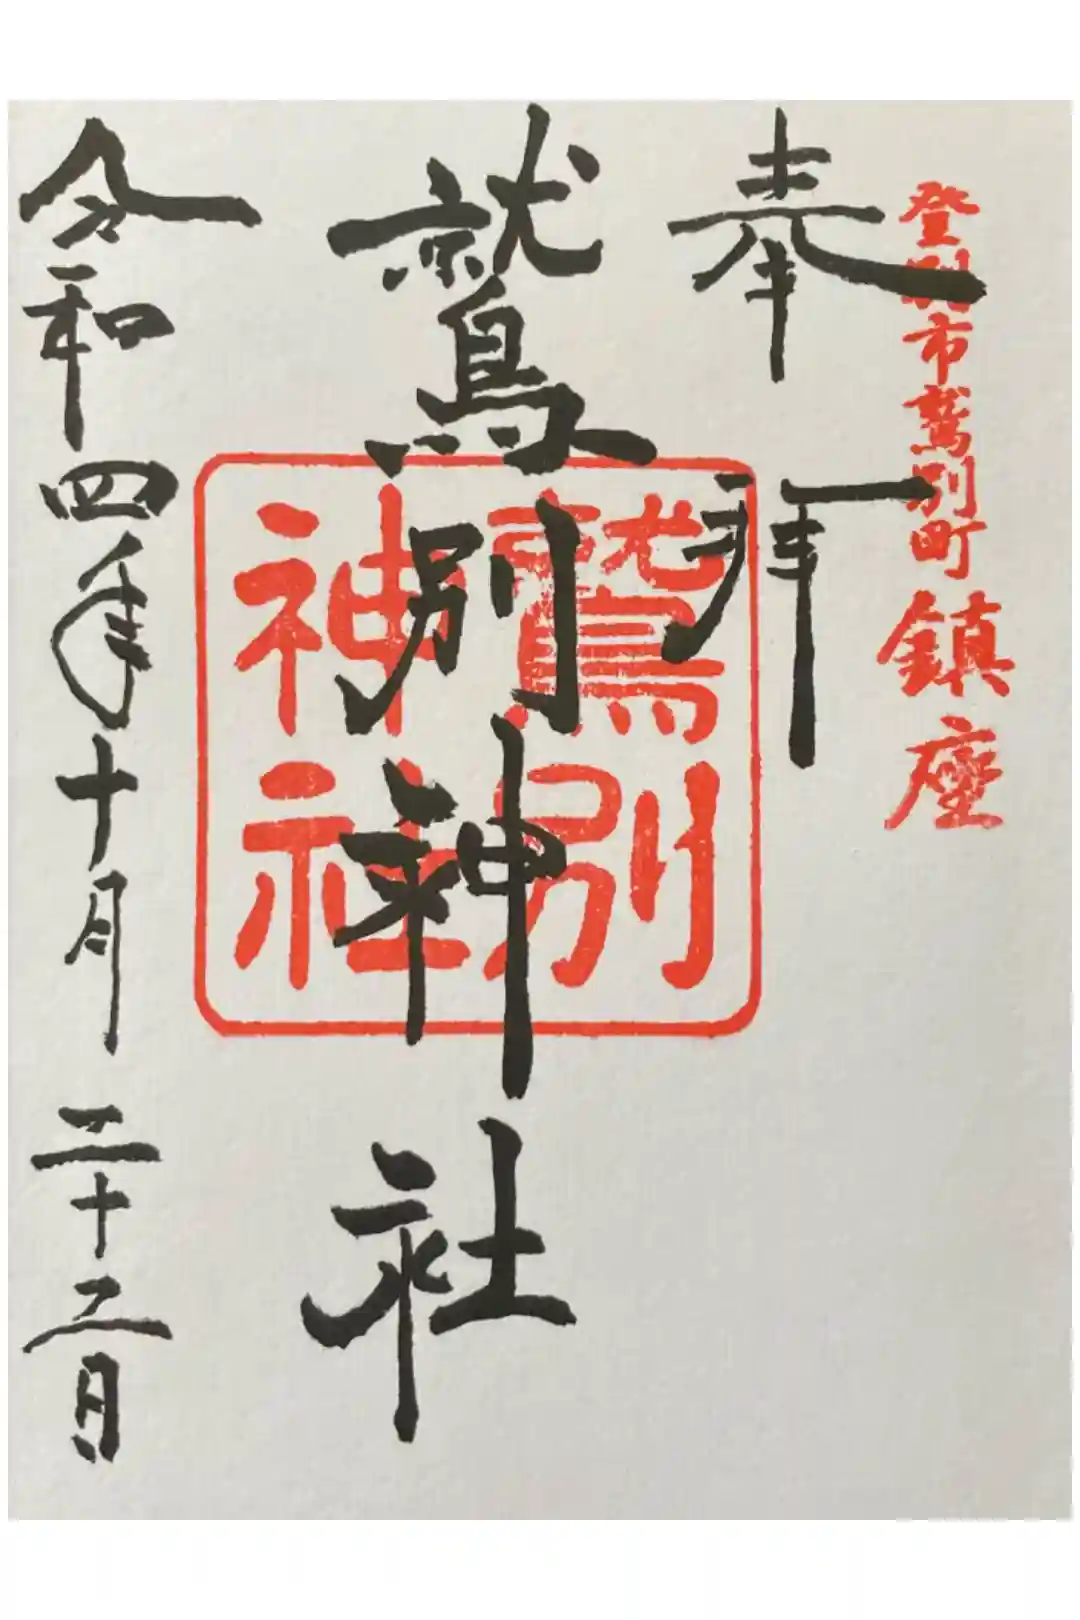 登別市鷲別町鎮座
奉拝
鷲別神社
鷲別
神社
令和四年十月二十二日